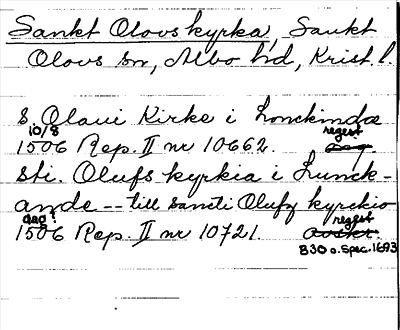 Sankt Olovs kyrka, Sankt
Olovs sn, Albo hd, Krist. l.
S. Olaui Kirke i Lonckinde
10/8 regest
1506 Rep. II nr 10662.
Sti. Olufs kyrkia i Lunck-
ande -- till Sancti Olufz kyrckio
dag? regest
1506 Rep. II nr 10721.
B30 o. Spec. 1693